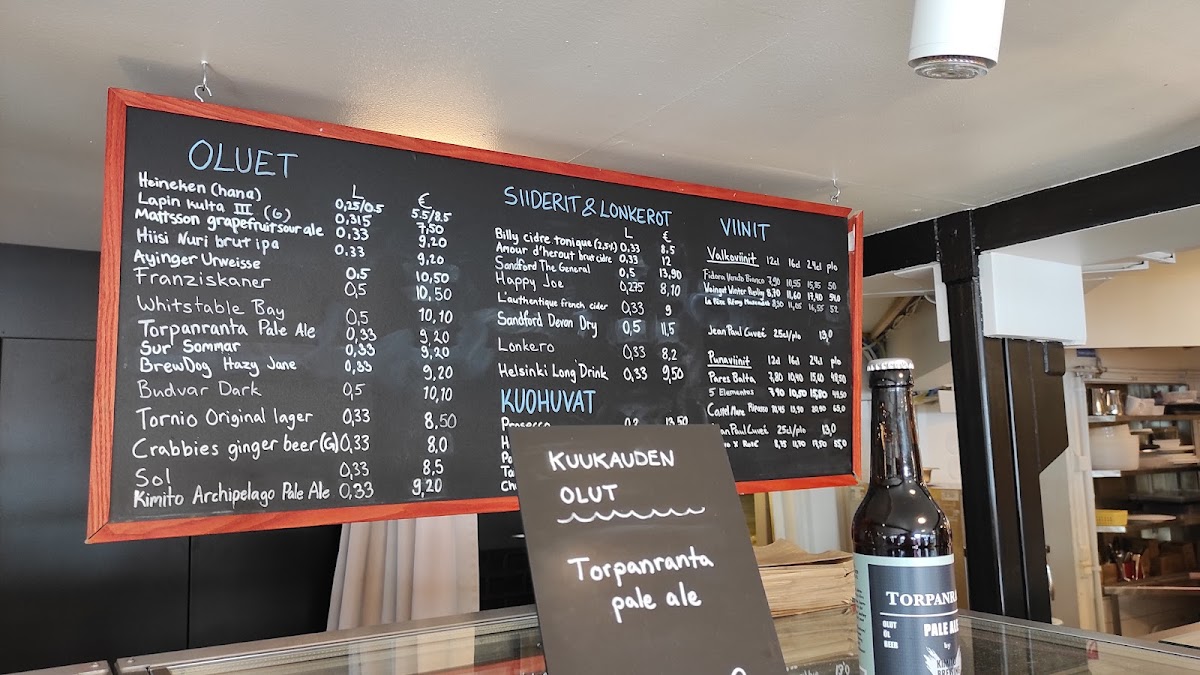 OLUET
L €
Heineken (hana) 0,25/0.5 5.5/8.5
Lapin kulta III (G) 0.315 7,50
Mattsson grapefruitsour ale 0.33 9,20
Hiisi Nuri brut ipa 0.33 9,20
Ayinger Urweisse 0.5 10,50
Franziskaner 0.5 10.50
Whitstable Bay 0.5 10,10
Torpanranta Pale Ale 0.33 9,20
Sur Sommar 0.33 9,20
BrewDog Hazy Jane 0,33 9,20
Budvar Dark 0.5 10,10
Tornio Original lager 0,33 8,50
Crabbies ginger beer (G) 0,33 8,0
Sol 0,33 8,5
Kimito Archipelago Pale Ale 0,33 9,20
SIIDERIT & LONKEROT
L €
Billy cidre tonique (2,5%) 0.33 8.5
Amour d'herout brut cidre 0.33 12
Sandford The General 0,5 13,90
Happy Joe 0,275 8,10
L'authentique french cider 0,33 9
Sandford Devon Dry 0,5 11,5
Lonkero 0,33 8,2
Helsinki Long Drink 0,33 9,50
KUOHUVAT
Prosecco 0.2 13,50
VIINIT
Valkoviinit 12cl 16cl 24cl plo
Jean Paul Cuveé 25cl/plo
Punaviinit 12cl 16cl 24cl plo
Pares Balta 7,80 10,40 15,60 48,50
5 Elementos 7,90 10,50 15,80 49,50
Castel Mare
Jean Paul Cuveé 25cl/plo
KUUKAUDEN
OLUT
Torpanranta
pale ale
TORPANRA
OLUT
ÖL
BEER
PALE ALE
by